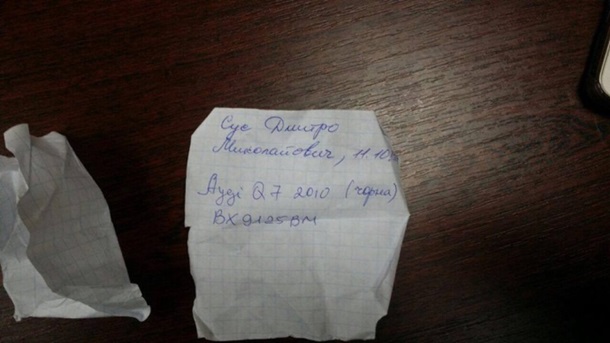 Сус Дмитро
Миколайович, 11.10.
Ауді Q7 2010 (чорна)
ВХ9125ВМ